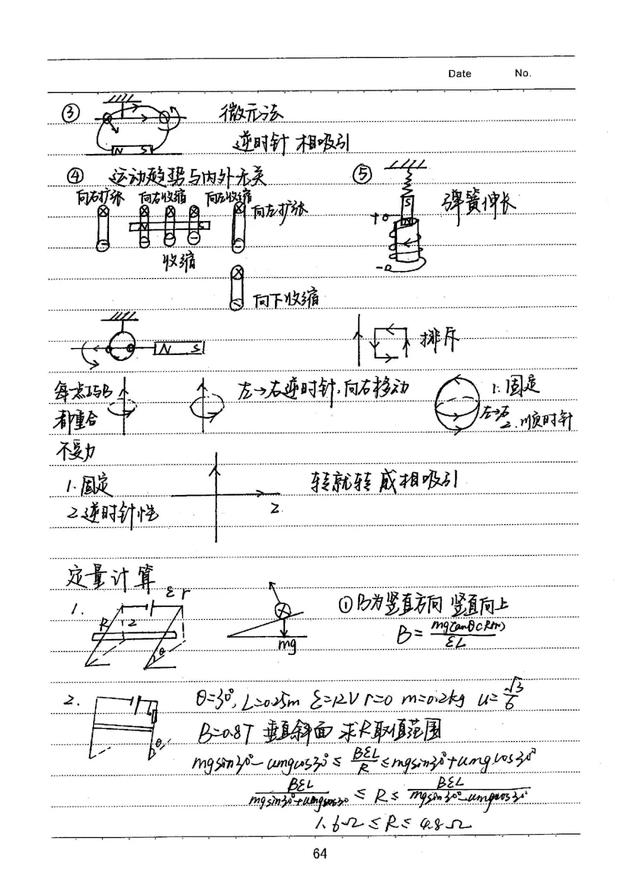 Date No.
③ 微元法
N S 逆时针 相吸引
④ 运动趋势与内外无关 ⑤
向右扩张 向右收缩 向左收缩 向左扩张
S 弹簧伸长
N S +0
收缩 -0
向下收缩
N S 排斥
每点I与B 左→右逆时针,向右移动 1. 固定
都重合 左→右
2. 顺时针
不受力
1. 固定 转就转成相吸引
2. 逆时针性 2
定量计算
ε r
1. R 2 θ mg ①B为竖直方向 竖直向上
B= mgtanθ(R+r)/εL
2. θ θ=30°, L=0.25m ε=12V r=0 m=0.2kg u=√3/6
B=0.8T 垂直斜面 求R取值范围
mgsin30°-umgcos30° ≤ BεL/R ≤ mgsin30°+umgcos30°
BεL/mgsin30°+umgcos30° ≤ R ≤ BεL/mgsin30°-umgcos30°
1.6Ω ≤ R ≤ 4.8Ω
64